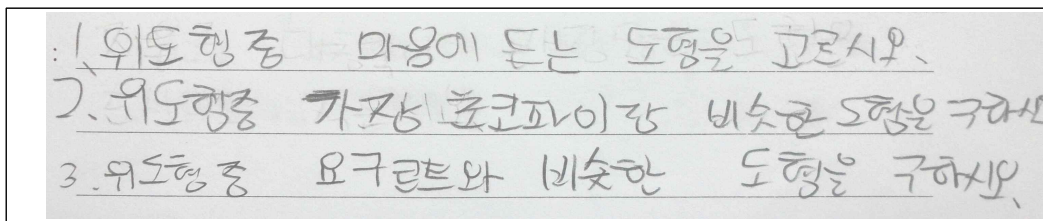 1. 위도형 중 마음에 드는 도형을 고르시오.
2. 위도형중 가장 초코파이랑 비슷한 도형을 구하시
3. 위도형 중 요구르트와 비슷한 도형을 구하시오.